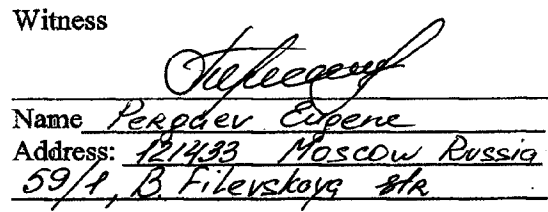 Witness
Name Pergaev Eugene
Address: 121433 Moscow Russia
59/1, B. Filevskaya str